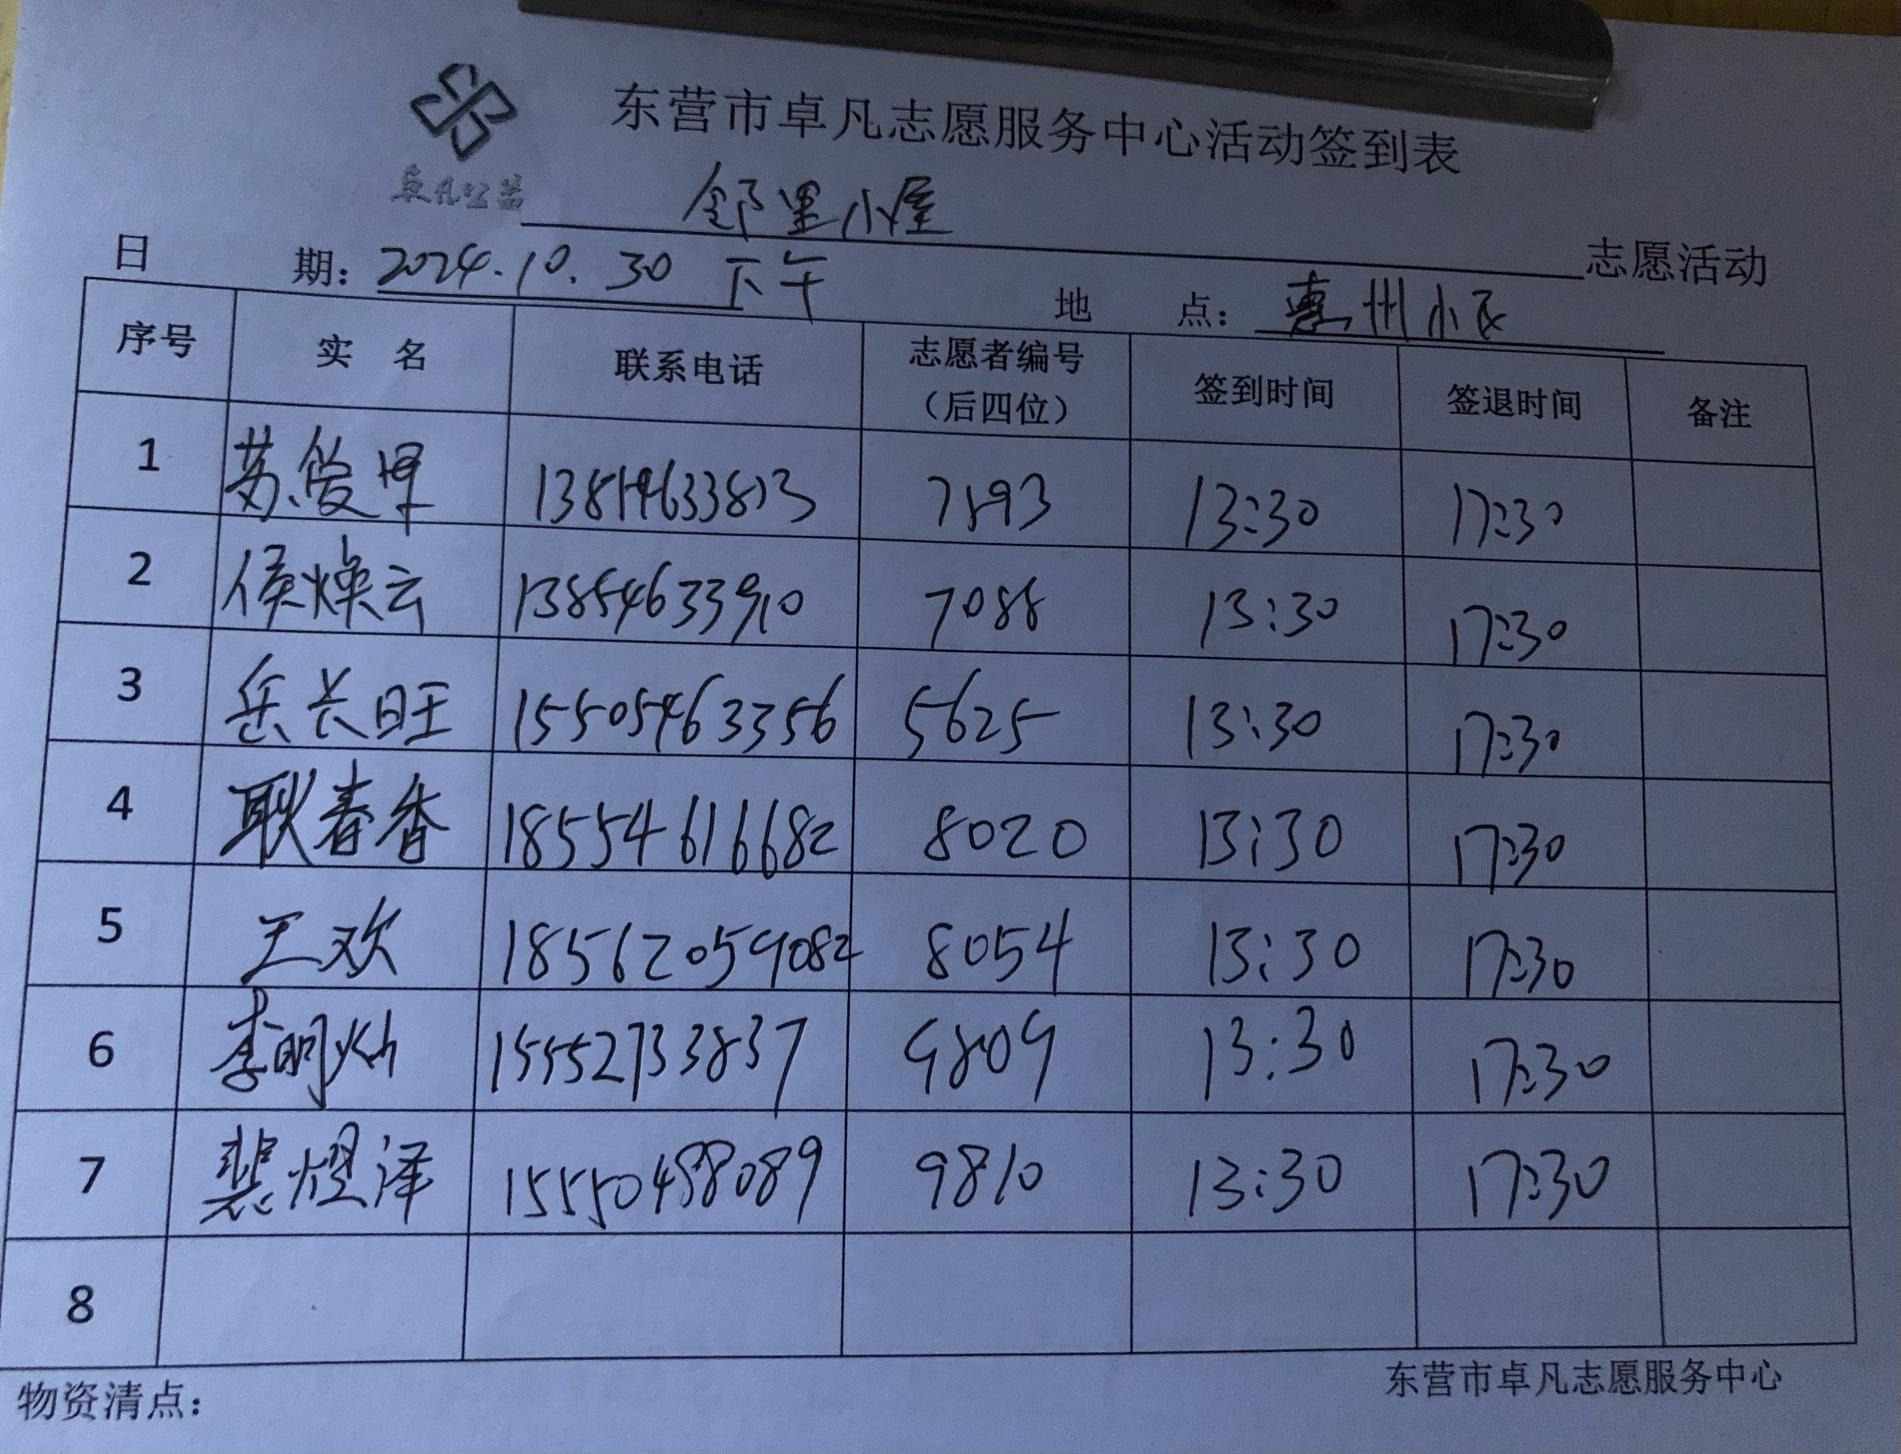 东营市卓凡志愿服务中心活动签到表
卓凡公益
邻里小屋 志愿活动
日 期：2024.10.30 下午 地 点：惠州小区
序号 实 名 联系电话 志愿者编号（后四位） 签到时间 签退时间 备注
1 苏俊 7893 13:30 17:30
2 侯焕云 13854633910 7088 13:30 17:30
3 岳长旺 15505463356 5625 13:30 17:30
4 耿春香 18554616682 8020 13:30 17:30
5 王欢 18562059082 8054 13:30 17:30
6 李明灿 15552733837 9809 13:30 17:30
7 裴熠泽 15550488089 9810 13:30 17:30
8
物资清点： 东营市卓凡志愿服务中心